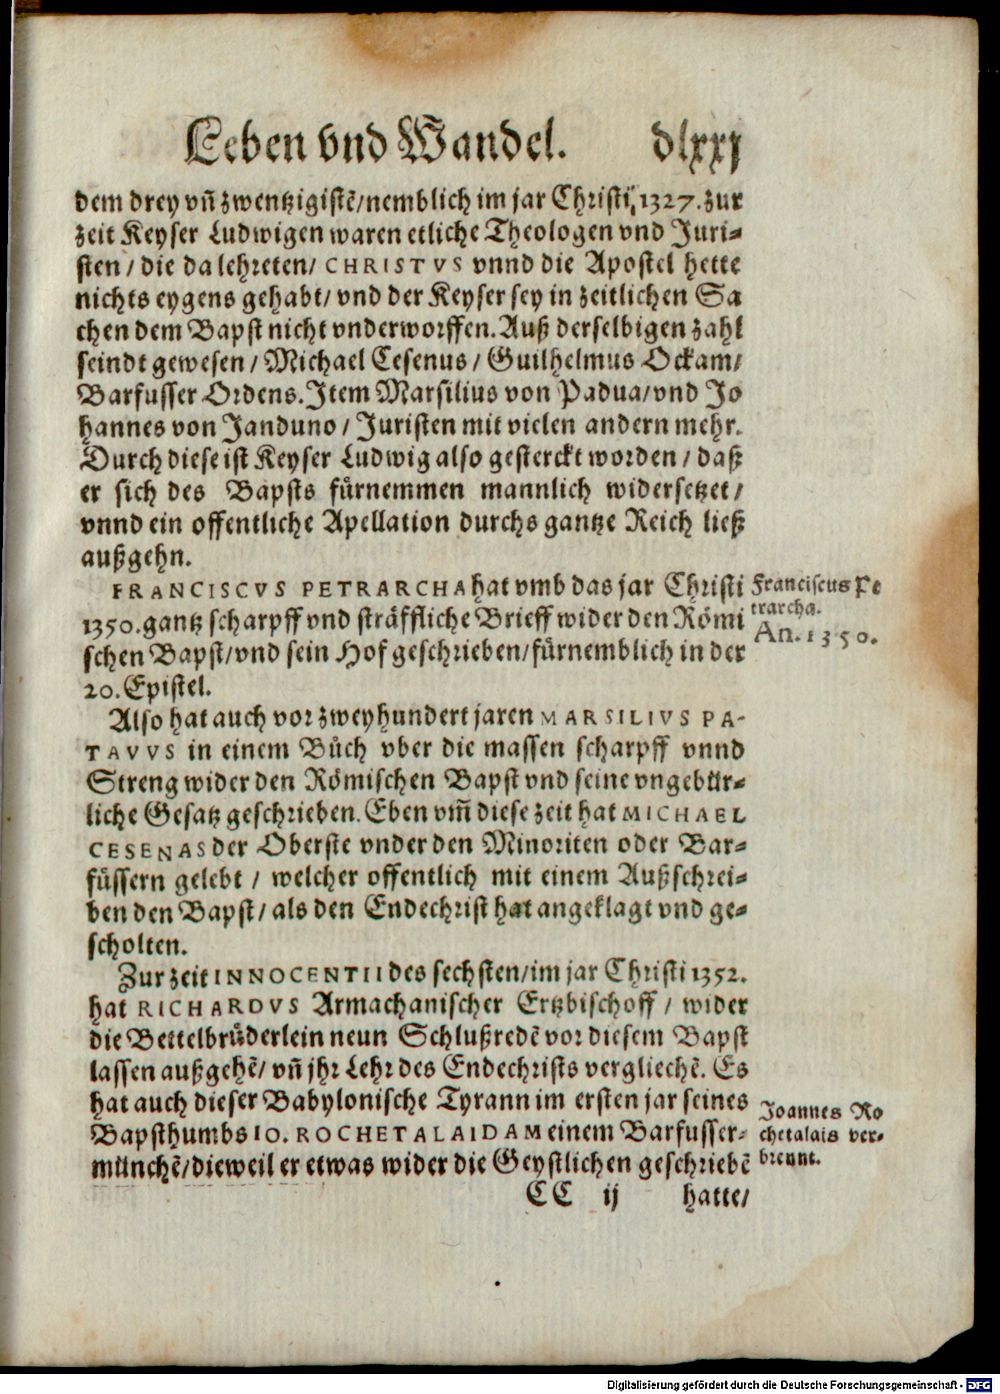 Leben vnd Wandel. dlxxj
dem drey vñ zwentzigistẽ/nemblich im jar Christi, 1327. zur
zeit Keyser Ludwigen waren etliche Theologen vnd Juri⸗
sten / die da lehreten/ CHRISTVS vnnd die Apostel hette
nichts eygens gehabt/ vnd der Keyser sey in zeitlichen Sa
chen dem Bapst nicht vnderworffen. Auß derselbigen zahl
seindt gewesen / Michael Cesenus / Guilhelmus Ockam/
Barfusser Ordens. Item Marsilius von Padua/vnd Jo
hannes von Janduno / Juristen mit vielen andern mehr.
Durch diese ist Keyser Ludwig also gesterckt worden / daß
er sich des Bapsts fürnemmen mannlich widersetzet /
vnnd ein offentliche Apellation durchs gantze Reich ließ
außgehn.
FRANCISCVS PETRARCHA hat vmb das jar Christi
1350. gantz scharpff vnd sträffliche Brieff wider den Römi
schen Bapst/vnd sein Hof geschrieben/fürnemblich in der
20. Epistel.
Franciscus Pe
trarcha.
An. 1350.
Also hat auch vor zweyhundert jaren MARSILIVS PA-
TAVVS in einem Bůch vber die massen scharpff vnnd
Streng wider den Römischen Bapst vnd seine vngebür⸗
liche Gesatz geschrieben. Eben vm̃ diese zeit hat MICHAEL
CESENAS der Oberste vnder den Minoriten oder Bar⸗
füssern gelebt / welcher offentlich mit einem Außschrei⸗
ben den Bapst/ als den Endechrist hat angeklagt vnd ge⸗
scholten.
Zur zeit INNOCENTII des sechsten/im jar Christi 1352.
hat RICHARDVS Armachanischer Ertzbischoff / wider
die Bettelbrüderlein neun Schlußredẽ vor diesem Bapst
lassen außgehẽ/ vñ jhr Lehr des Endechrists vergliechẽ. Es
hat auch dieser Babylonische Tyrann im ersten jar seines
Bapsthumbs IO. ROCHETALAIDAM einem Barfusser⸗
münchẽ/dieweil er etwas wider die Geystlichen geschriebẽ
Joannes Ro
chetalais ver⸗
brennt.
CC ij hatte/
Digitalisierung gefördert durch die Deutsche Forschungsgemeinschaft - DFG